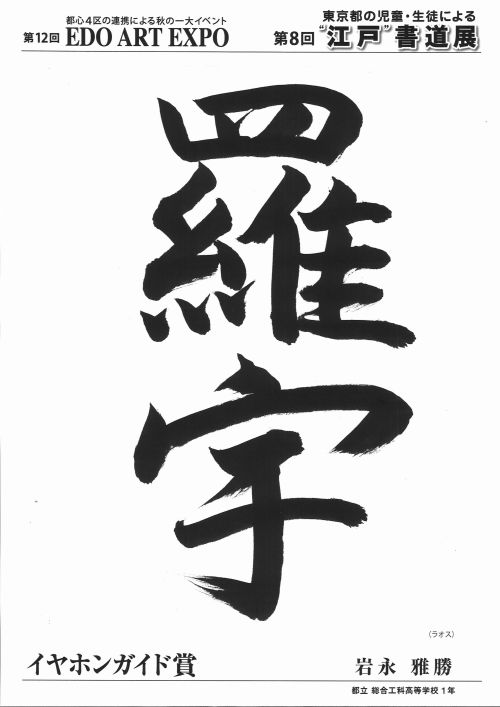 都心4区の連携による秋の一大イベント
第12回 EDO ART EXPO
東京都の児童・生徒による
第8回 “江戸”書道展
羅宇
(ラオス)
イヤホンガイド賞
岩永 雅勝
都立 総合工科高等学校 1年